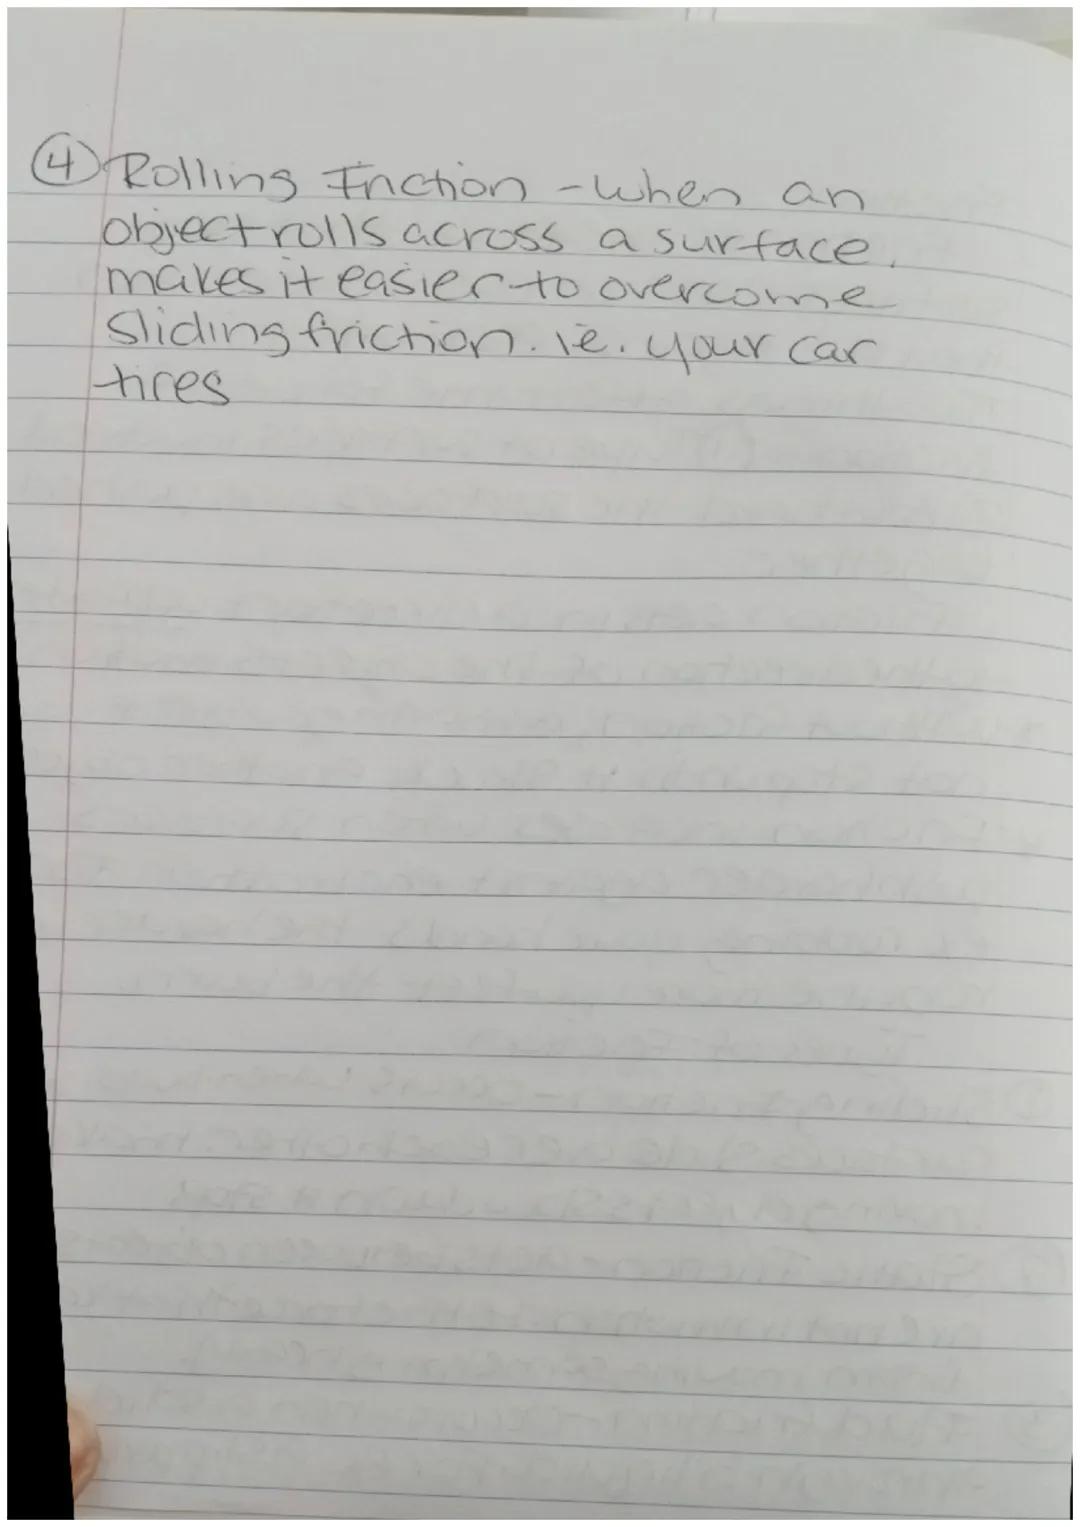 ④ Rolling Friction - when an
object rolls across a surface.
makes it easier to overcome
sliding friction. ie. your car
tires